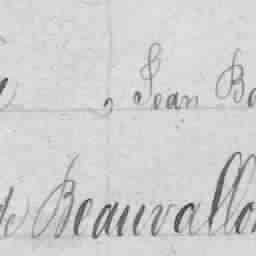 , Jean Ba
de Beauvallon